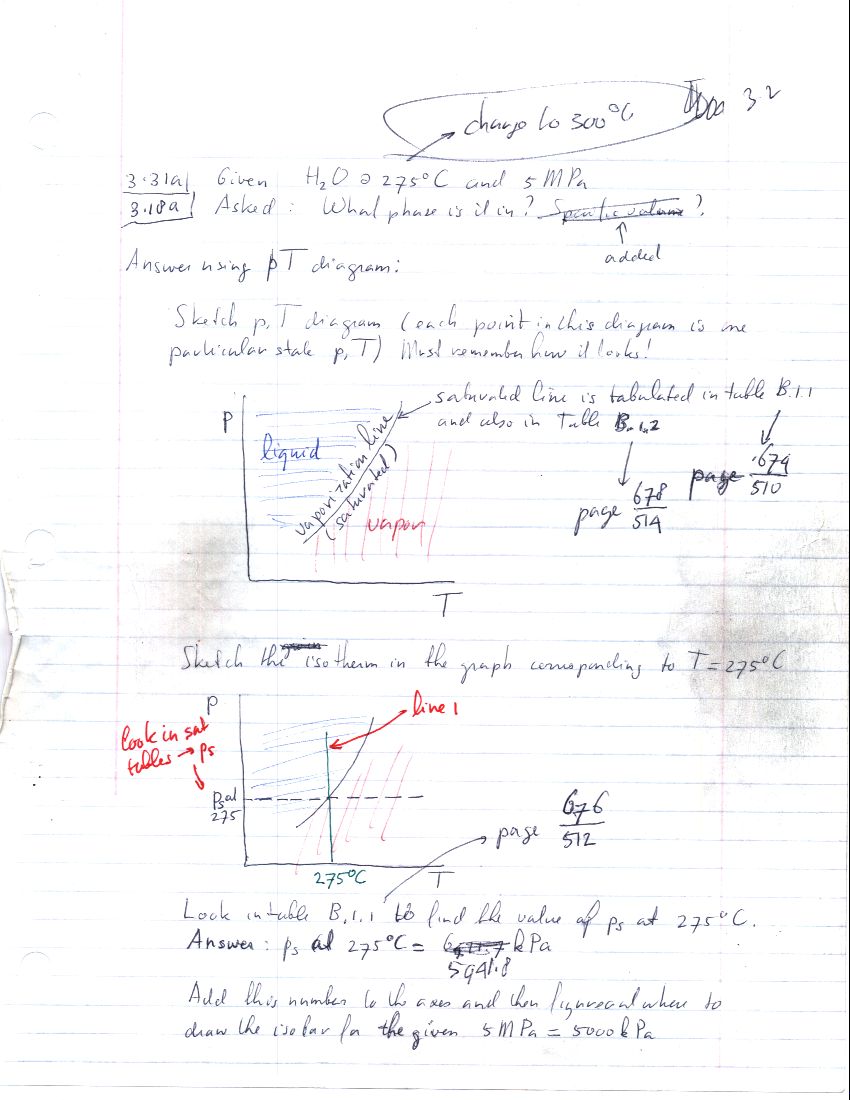 change to 300°C
3.2
3.31a Given H₂O @ 275°C and 5 MPa
3.18a Asked: What phase is it in? Specific volume?
added
Answer using pT diagram:
Sketch p,T diagram (each point in this diagram is one
particular state p,T) Must remember how it looks!
saturated line is tabulated in table B.1.1
and also in Table B.1.2
P
liquid
vaporization line
(saturated)
vapor
page 674/510
page 678/514
T
Sketch the isotherm in the graph corresponding to T = 275°C
P
line 1
Look in sat
tables → ps
ps at
275
page 676/512
275°C T
Look in table B.1.1 to find the value of ps at 275°C.
Answer: ps at 275°C = kPa
5941.8
Add this number to the axes and then figure out where to
draw the isobar for the given 5 MPa = 5000 kPa